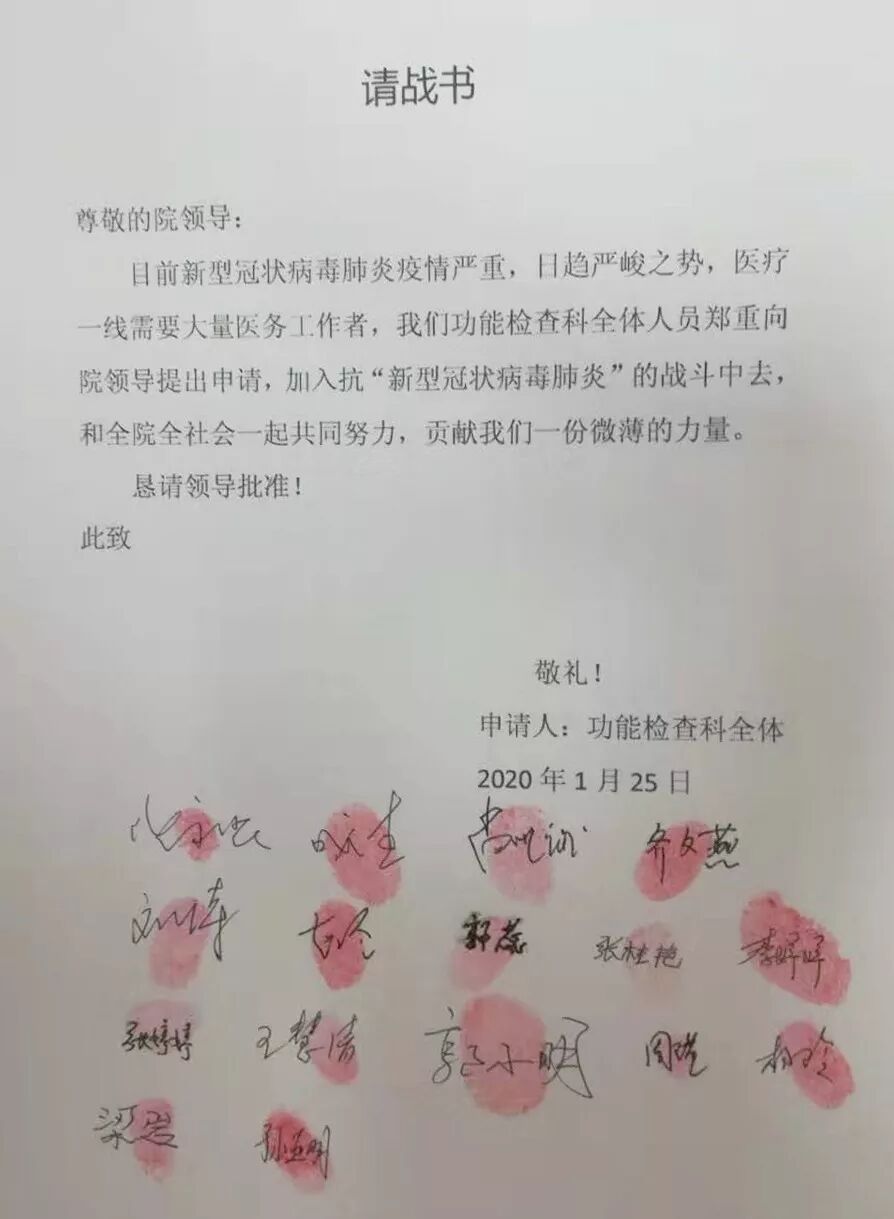 请战书
尊敬的院领导：
目前新型冠状病毒肺炎疫情严重，日趋严峻之势，医疗
一线需要大量医务工作者，我们功能检查科全体人员郑重向
院领导提出申请，加入抗“新型冠状病毒肺炎”的战斗中去，
和全院全社会一起共同努力，贡献我们一份微薄的力量。
恳请领导批准！
此致
敬礼！
申请人：功能检查科全体
2020 年 1 月 25 日
齐文燕
郭蕊 张桂艳 李婷婷
张婷婷 王慧清 郭小明 周莹 杨玲
梁岩 孙亚明